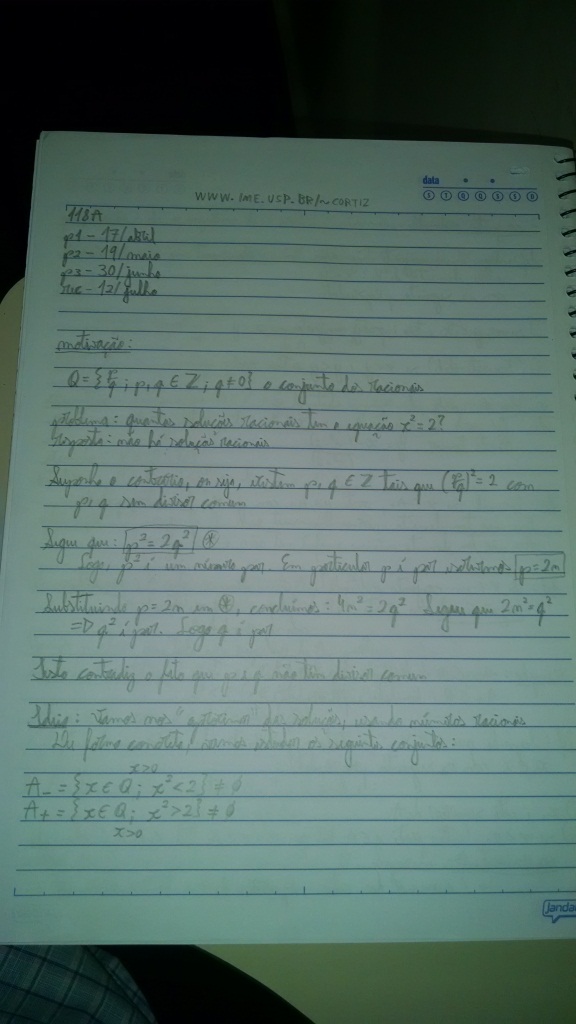 data
WWW.IME.USP.BR/~CORTIZ
118A
p1 - 17/abril
p2 - 19/maio
p3 - 30/junho
rec - 12/julho
motivação:
Q = {p/q ; p, q ∈ Z ; q ≠ 0} o conjunto dos racionais
problema: quantas soluções racionais tem a equação x² = 2?
Resposta: não há solução racionais
Suponha o contrário, ou seja, existem p, q ∈ Z tais que (p/q)² = 2 com
p, q sem divisor comum
Segue que: p² = 2q² ⊛
Logo, p² é um número par. Em particular p é par p = 2m
Substituindo p = 2m em ⊛, concluímos: 4m² = 2q² Segue que 2m² = q²
=> q² é par. Logo q é par
Isto contradiz o fato que p e q não têm divisor comum
Ideia: Vamos nos "aproximar" das soluções, usando números racionais
De forma concreta, vamos estudar os seguintes conjuntos:
x>0
A₋ = {x ∈ Q ; x² < 2} ≠ ∅
A₊ = {x ∈ Q ; x² > 2} ≠ ∅
x>0
Janda